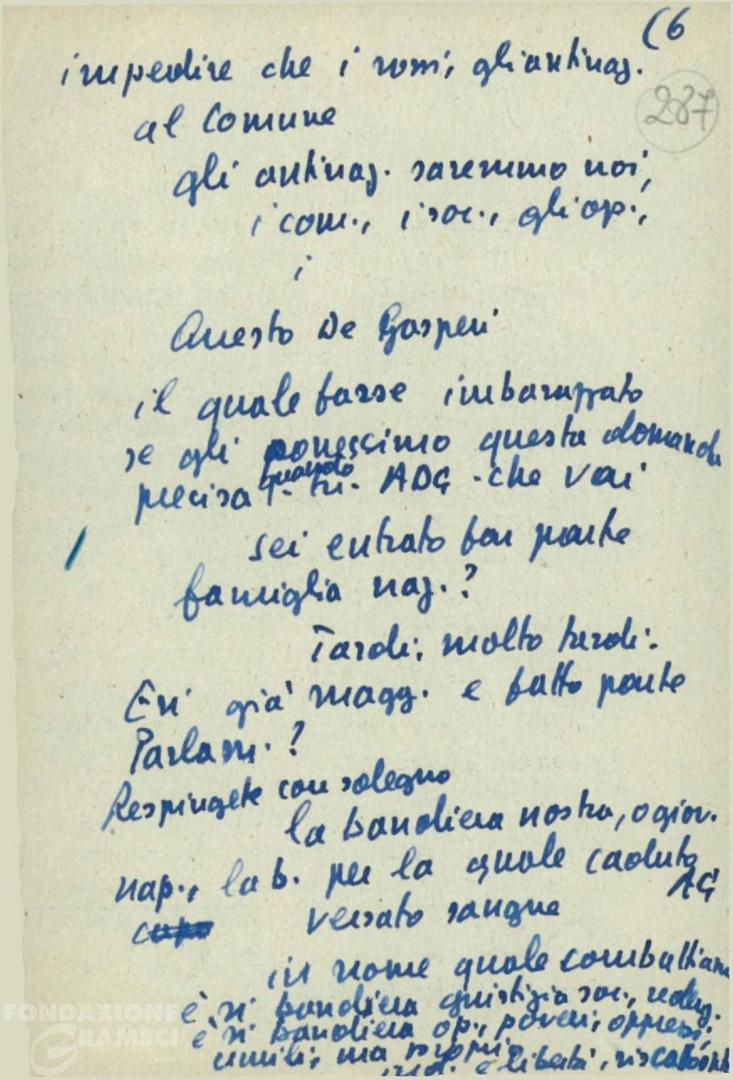 (6
287
impedire che i rossi, gli antinaz.
al Comune
gli antinaz. saremmo noi,
i com., i soc., gli op.,
i
Questo De Gasperi
il quale forse imbarazzato
se gli ponessimo questa domanda
precisa quando tu ADG - che vai
sei entrato far parte
famiglia naz.?
Tardi, molto tardi.
Eri già magg. e fatto parte
Parlam.?
Respingete con sdegno
la bandiera nostra, o giov.
nap., la b. per la quale caduto
AG
versato sangue
in nome quale combattiamo
è sì bandiera giustizia soc., reden.
è sì bandiera op., poveri, oppressi,
umili, ma
è libertà,
FONDAZIONE
GRAMSCI